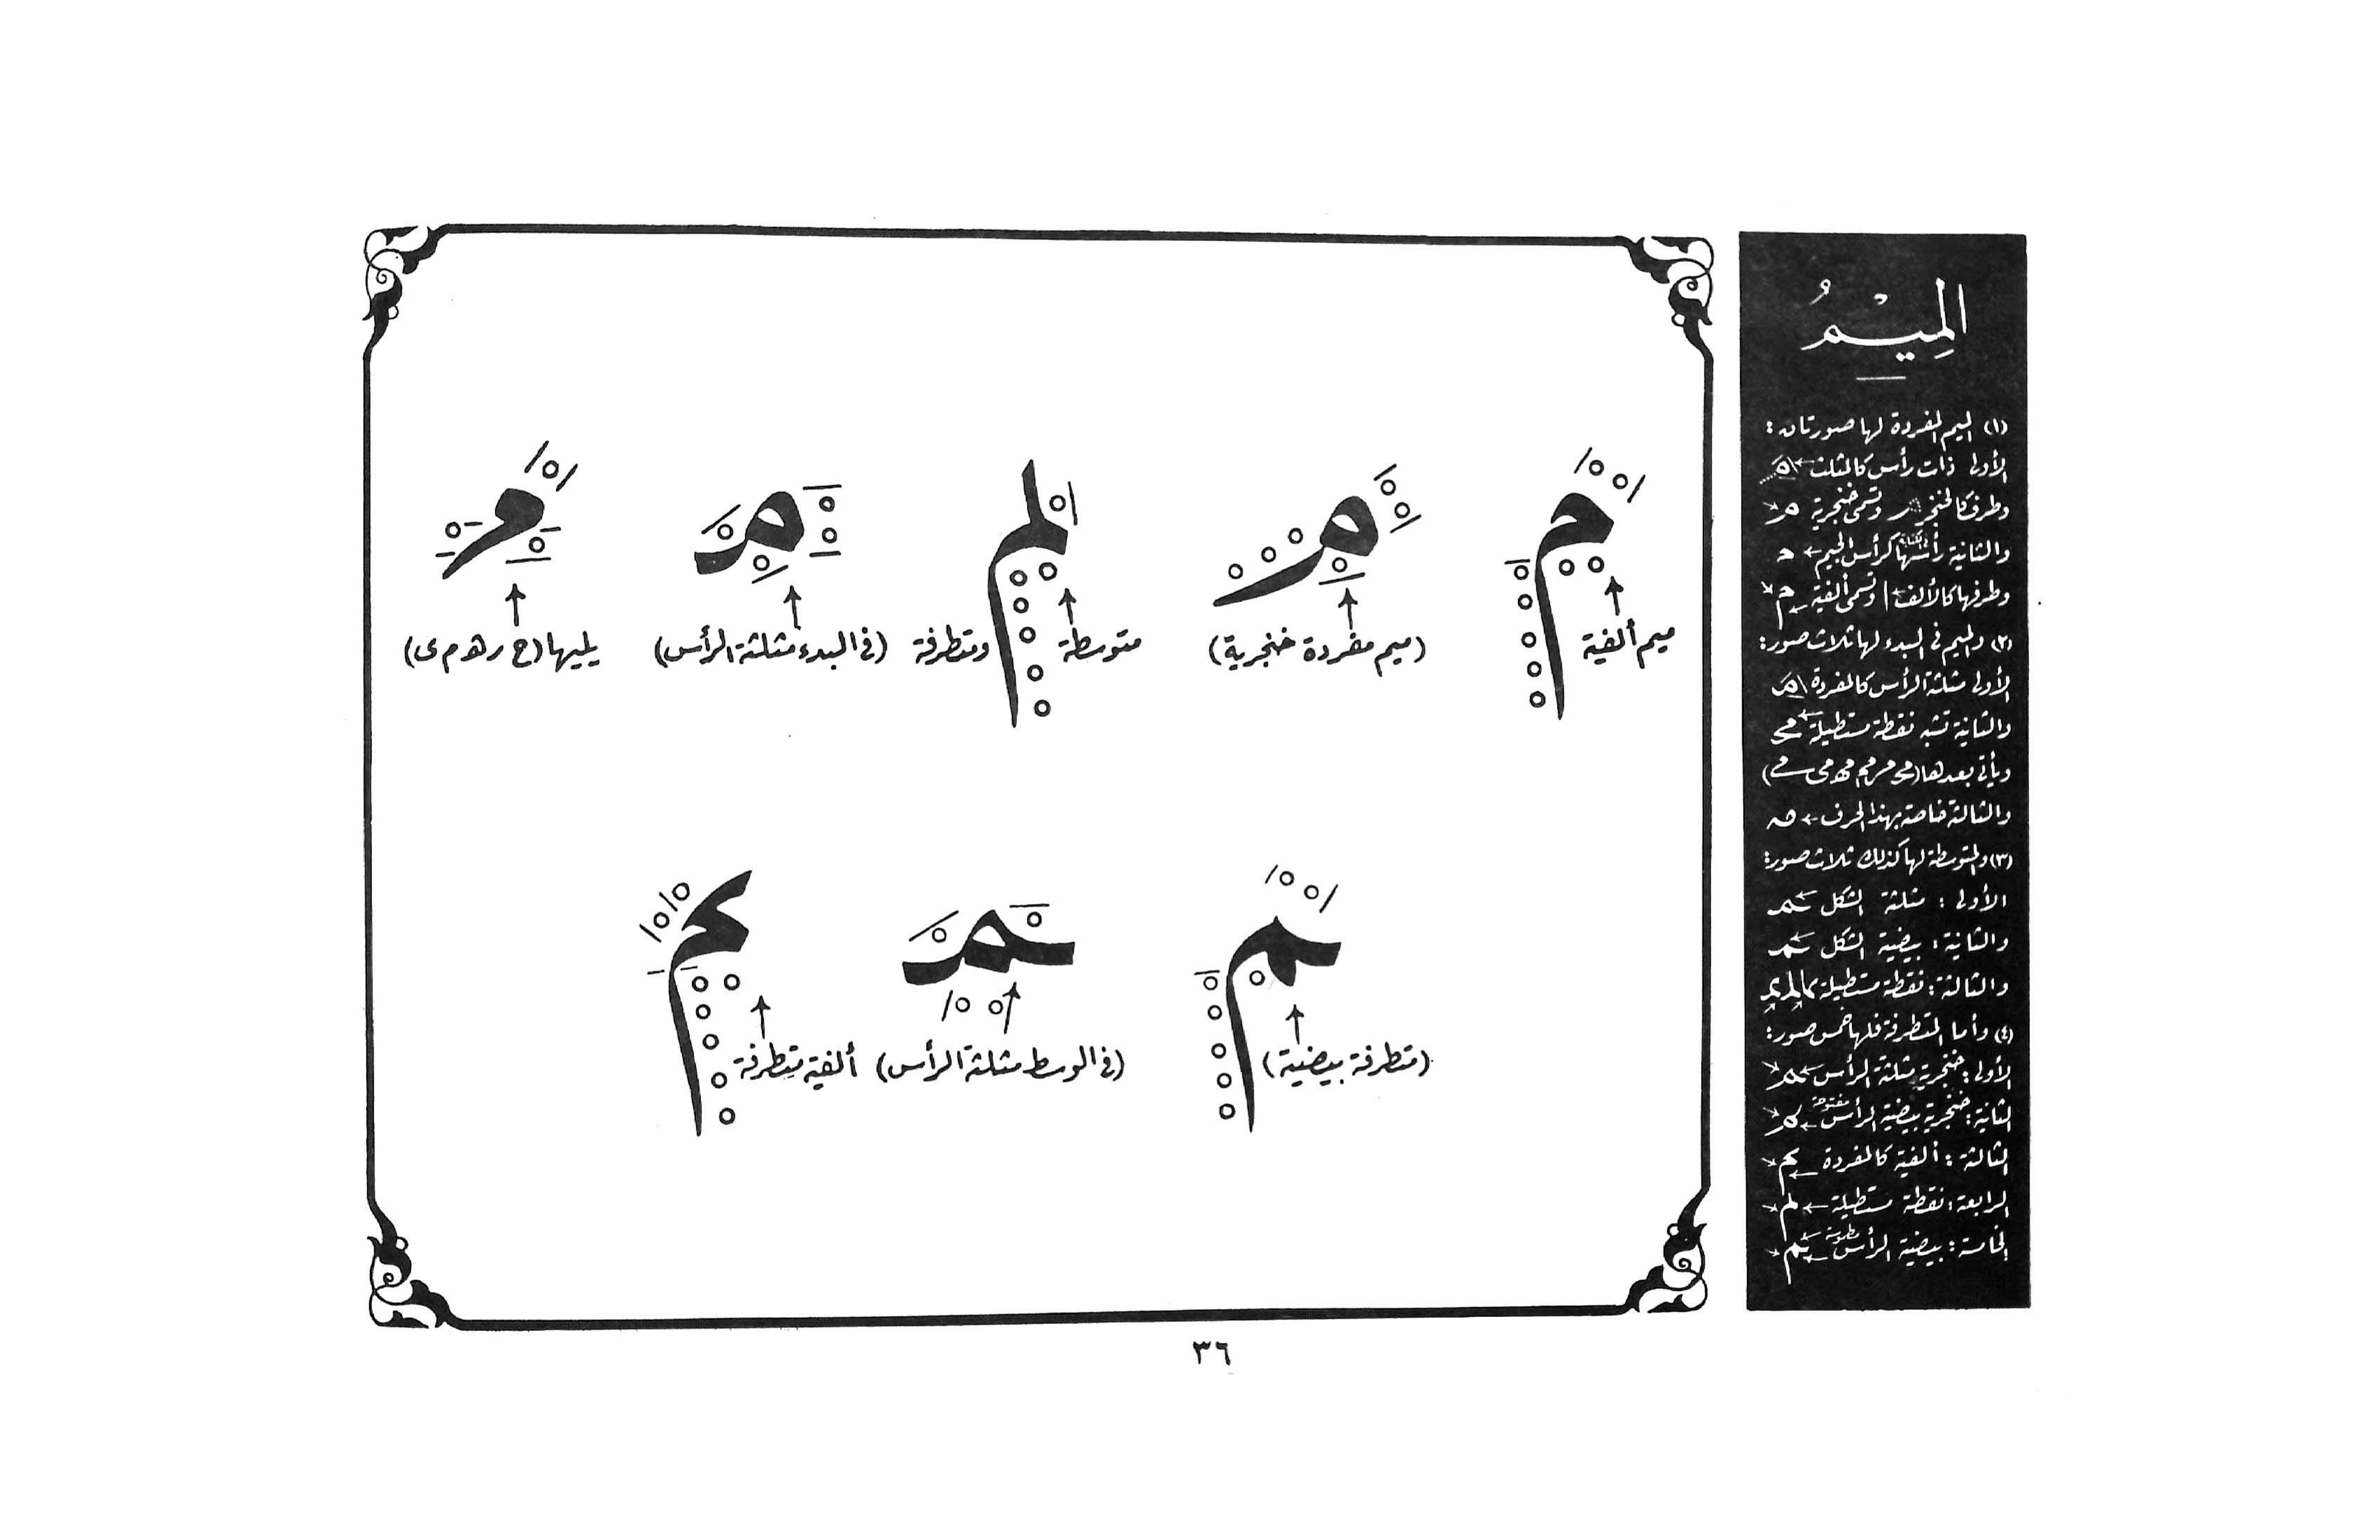 المِيْمُ
(١) الميم المفردة لها صورتان:
الأولى ذات رأس كالمثلث
وطرف كالخنجر وتسمى خنجرية
والثانية رأسها كرأس الجيم
وطرفها كالألف ا وتسمى ألفية
(٢) والميم في البدء لها ثلاث صور:
الأولى مثلثة الرأس كالمفردة
والثانية تشبه نقطة مستطيلة
ويأتي بعدها
والثالثة خاصة بهذا الحرف
(٣) والمتوسطة لها كذلك ثلاث صور:
الأولى: مثلثة الشكل
والثانية: بيضية الشكل
والثالثة: نقطة مستطيلة
(٤) وأما المتطرفة فلها خمس صور:
الأولى: خنجرية مثلثة الرأس
الثانية: خنجرية بيضية الرأس مفتوحة
الثالثة: ألفية كالمفردة
الرابعة: نقطة مستطيلة
الخامسة: بيضية الرأس مطموسة
م م لم مـ مـ
ميم ألفية
(ميم مفردة خنجرية)
متوسطة ومتطرفة
(في البدء مثلثة الرأس)
يليها (ح ر هـ م ى)
(متطرفة بيضية)
(في الوسط مثلثة الرأس)
ألفية متطرفة
٣٦